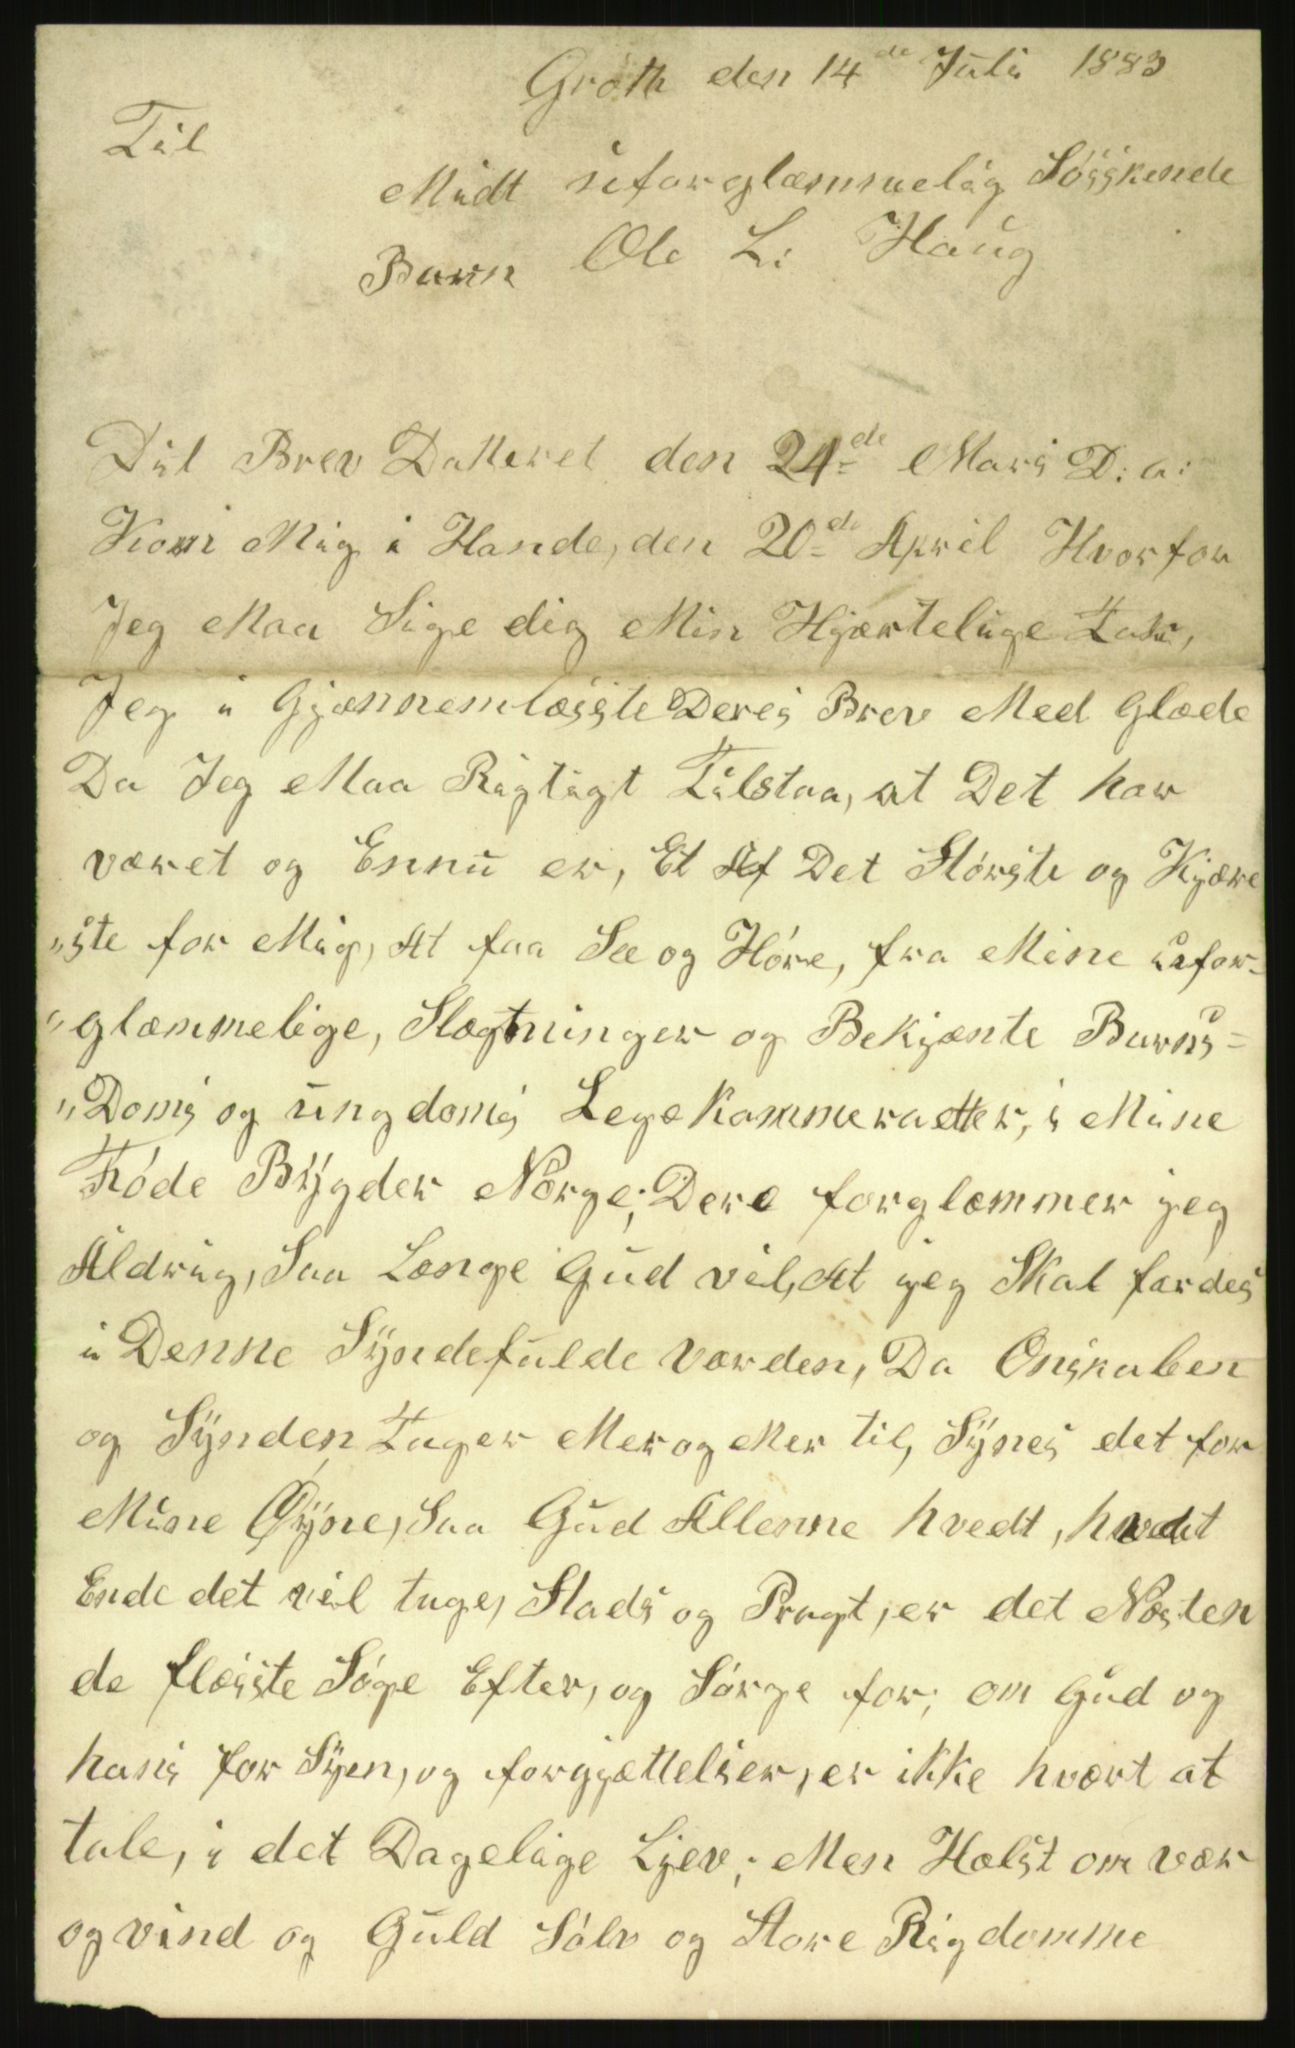 Groth den 14de Juli 1883
Til
Midt uforglæmmelig Søsskende
Barn Ole L: Haug
Dit Brev Datteret den 24de Mars D: a:
Kom Mig i Hande, den 20de April Hvorfor
Jeg Maa Sige dig Min Hjærtelige Tak,
Jeg i Gjønnemlæsste Deres Brev Med Glæde
Da Jeg Maa Rigtigt Tilstaa, at Det har
været og Ennu er, Et Af Det Største og Kjære
"ste for Mig, At faa Se og Høre, fra Mine ufor-
"glæmmelige, Slægtninger og Bekjænte Barns=
"Doms og ungdoms Legekammeratter, i Mine
Føde Bygder Norge; Dere forglæmmer jeg
Aldrig, Saa Længe Gud vil, At jeg Skal færdes
i Denne Syndefulde værden, Da Onskaben
og Synden Tager Mer og Mer til, Synes det for
Mine Øyne, Saa Gud Allenne hvedt, hvadt
Ende det vil tage, Stads og Pragt, er det Næsten
de flæsste Søge Efter, og Sørge for; om Gud og
hans for Syen, og forgjættelser, er ikke hvært at
tale, i det Dagelige Ljev; Men Hælst om vær
og vind og Guld Sølv og Store Rigdomme